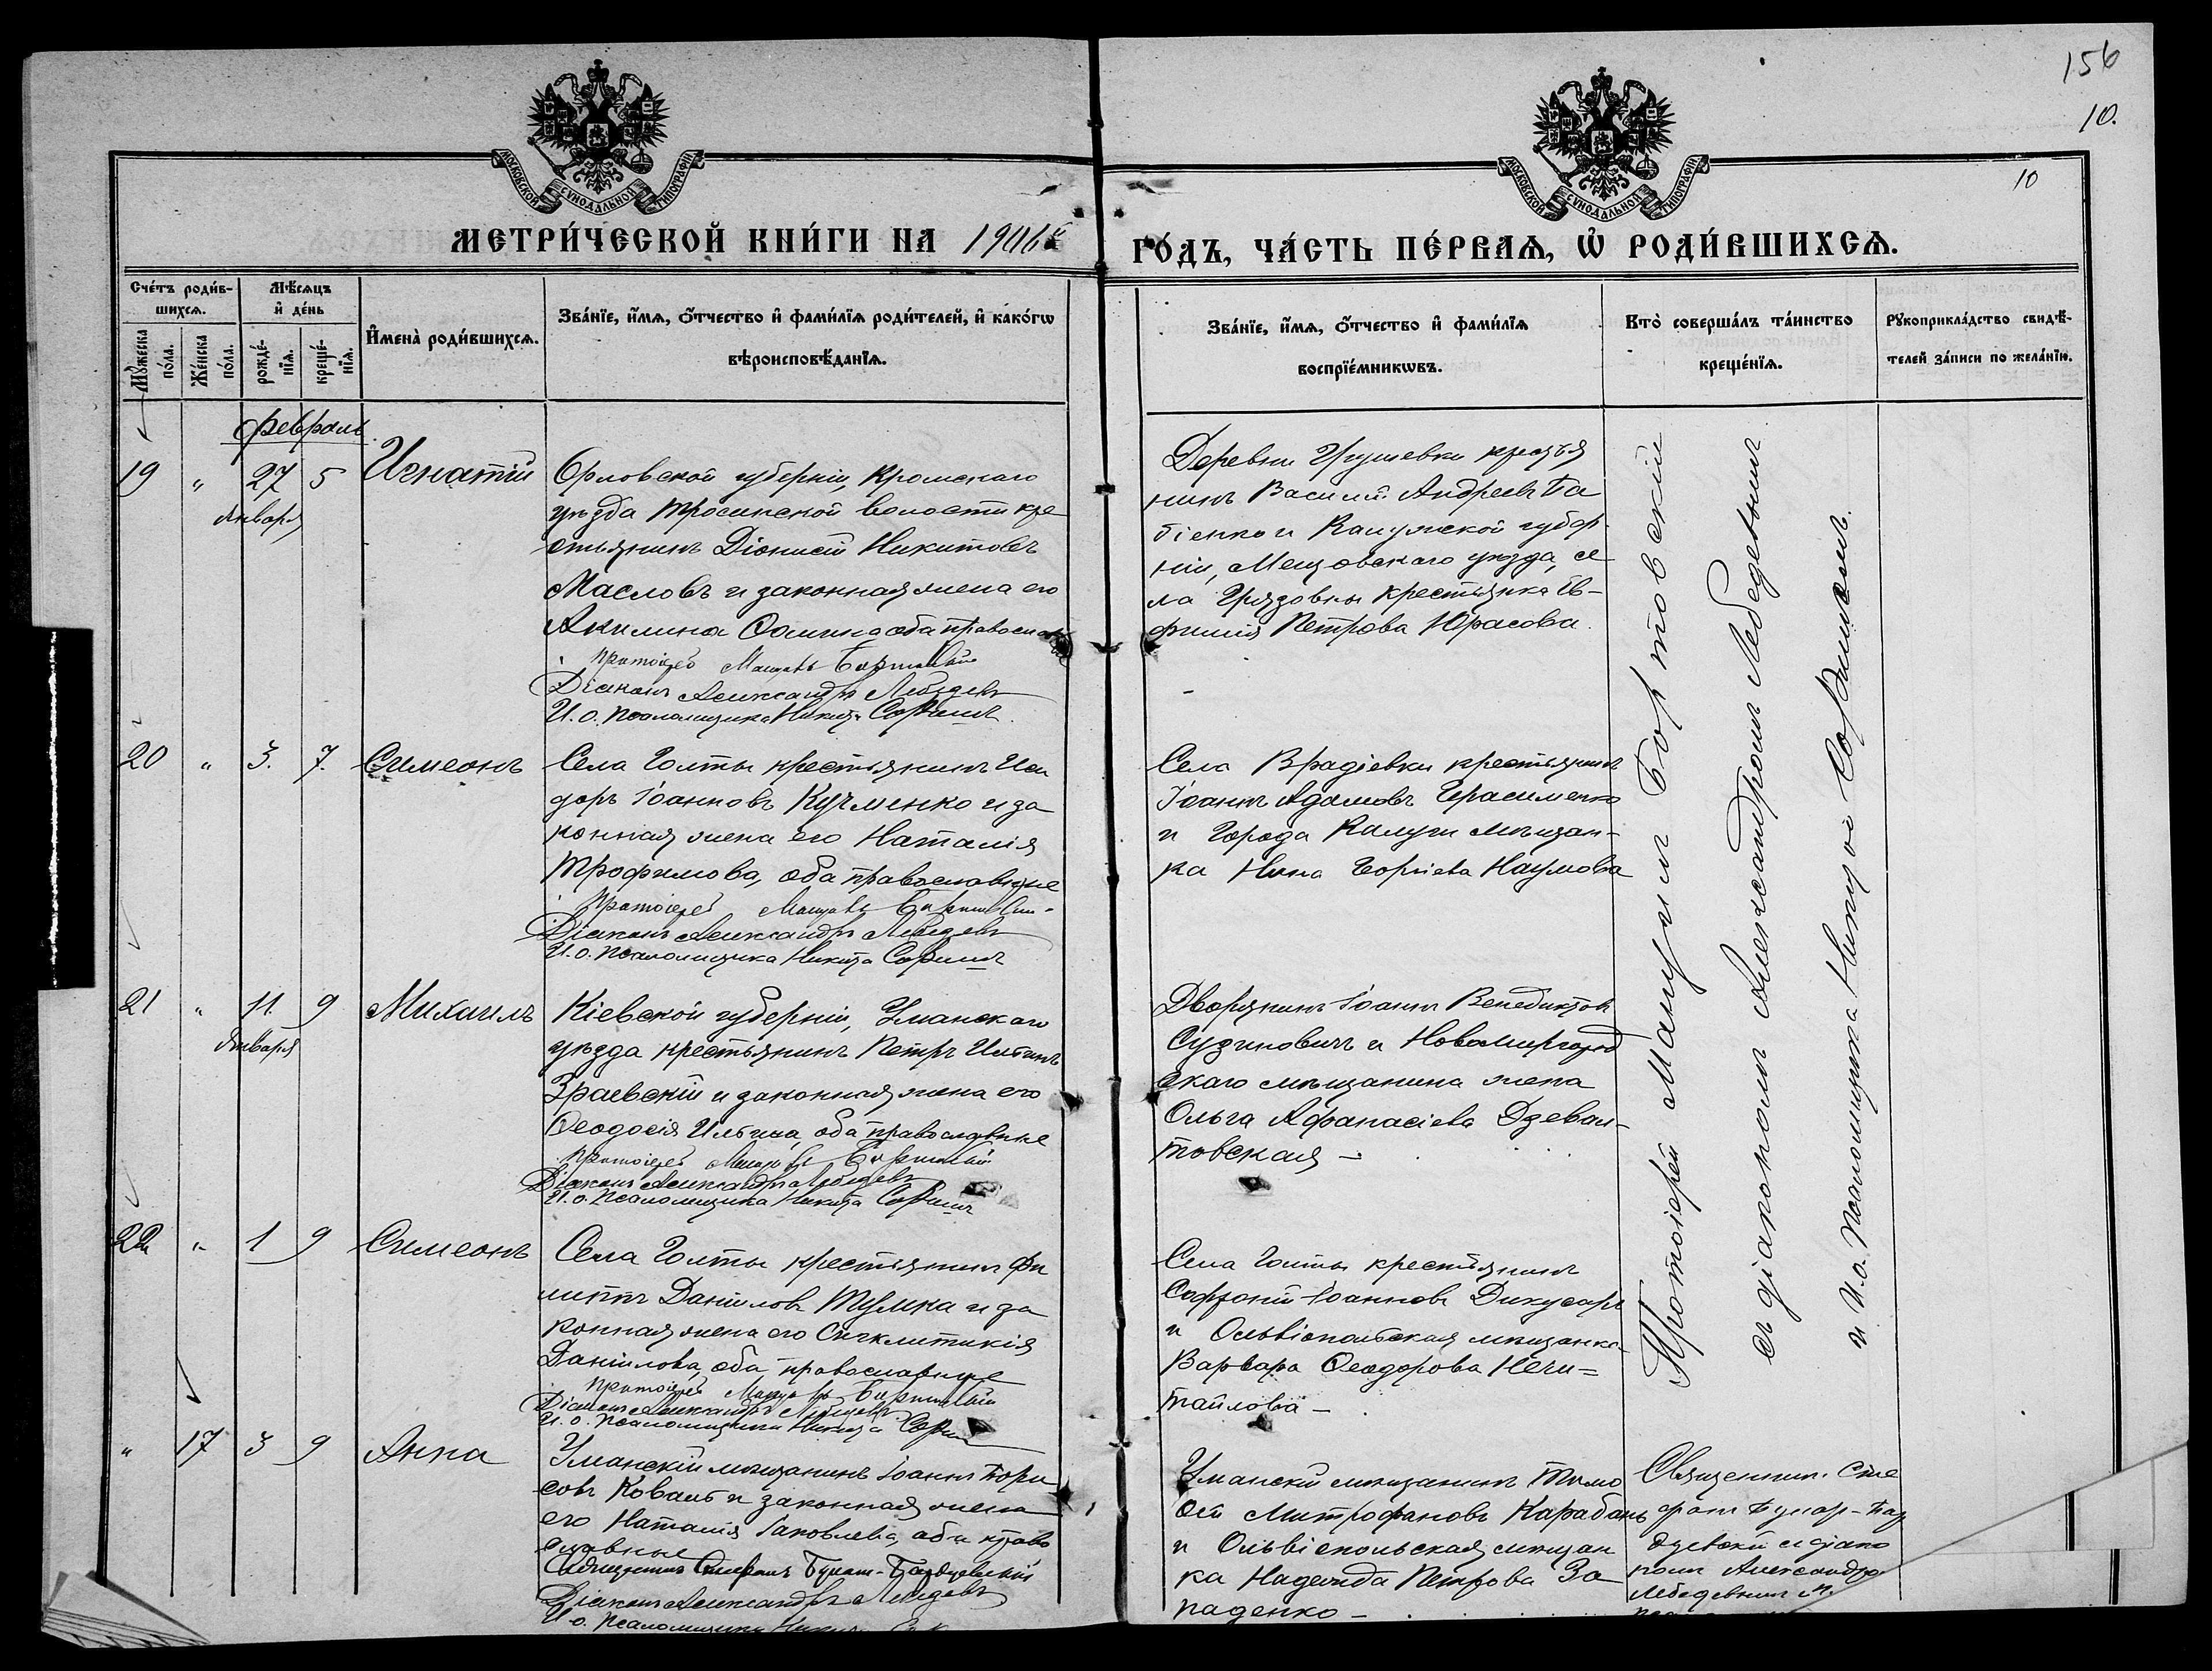 156
10.
10
МОСКОВСКОЙ СѴНОДАЛЬНОЙ ТИПОГРАФІИ
МОСКОВСКОЙ СѴНОДАЛЬНОЙ ТИПОГРАФІИ
МЕТРИ́ЧЕСКОЙ КНИ́ГИ НА 1906й
ГО́ДЪ, ЧА́СТЬ ПЕ́РВАѦ, Ѡ҆ РОДИ́ВШИХСѦ.
Сче́тъ роди́в-
шихсѧ.
Мꙋ́жеска
по́ла.
Же́нска
по́ла.
Мѣ́сѧцъ
и҆ де́нь
рожде́-
нїѧ.
креще́-
нїѧ.
И҆мена̀ роди́вшихсѧ.
Зва́нїе, и҆́мѧ, ѻ҆́тчество и҆ фами́лїѧ роди́телей, и҆ како́гѡ
вѣроисповѣ́данїѧ.
Зва́нїе, и҆́мѧ, ѻ҆́тчество и҆ фами́лїѧ
воспрїе́мникѡвъ.
Кто̀ соверша́лъ та́инство
креще́нїѧ.
Рꙋкоприкла́дство свидѣ́-
телей за́писи по жела́нїю.
февраль
19 " 27 5 Игнатій
января
Орловской губерніи, Кромскаго
уѣзда Тросинской волости кре
стьянинъ Діонисій Никитовъ
Масловъ и законная жена его
Акилина Ѳомина оба православ
Протоіерей
Діаконъ Александръ Лебедевъ
И. о. псаломщика Никита
Деревни Грушевки крестья
нинъ Василій Андреевъ Ба
біенко и Калужской губер
ніи, Мещовскаго уѣзда, се
ла Грязовки крестьянка Ев-
фимія Петрова Юрасова.
20 " 3. 7. Симеонъ
Села Голты крестьянинъ Иси
доръ Іоанновъ Кучменко и за
конная жена его Наталія
Трофимова, оба православные
Протоіерей
Діаконъ Александръ Лебедевъ
И. о. псаломщика Никита
Села Врадіевки крестьянинъ
Іоаннъ Адамовъ Герасименко
и города Калуги мѣщан-
ка Нина Георгіева Наумова
21 " 11 9 Михаилъ
января
Кіевской губерніи, Уманскаго
уѣзда крестьянинъ Петръ Ильинъ
Зраевскій и законная жена его
Ѳеодосія Ильина, оба православные
Протоіерей
Діаконъ Александръ Лебедевъ
И. о. псаломщика Никита
Дворянинъ Іоаннъ Венедиктовъ
Судиновичъ и Новомиргород
скаго мѣщанина жена
Ольга Афанасіева Дзевал-
товская —
22 " 1 9 Симеонъ
Села Голты крестьянинъ Фи
липпъ Даніиловъ Тулика и за
конная жена его Сигклитикія
Даніилова, оба православные
Протоіерей
Діаконъ Александръ Лебедевъ
И. о. псаломщика Никита
Села Голты крестьянинъ
Софроній Іоанновъ Дикусаръ
и Ольвіопольская мѣщанка
Варвара Ѳеодорова Нечи=
тайлова —
" 17 3 9 Анна
Уманскій мѣщанинъ Іоаннъ Бори
совъ Коваль и законная жена
его Наталія Іаковлева, оба право
славные
Священникъ Стефанъ
Діаконъ Александръ Лебедевъ
И. о. псаломщика
Уманскій мѣщанинъ Тимо
ѳей Митрофановъ Карабань
и Ольвіопольская мѣщан
ка Надежда Петрова За
паденко —
Протоіерей Мануилъ Бортовскій
съ діакономъ Александромъ Лебедевымъ
и И. о. псаломщика Никитою
Священник. Сте
фанъ
съ діако
номъ Александро
Лебедевымъ и